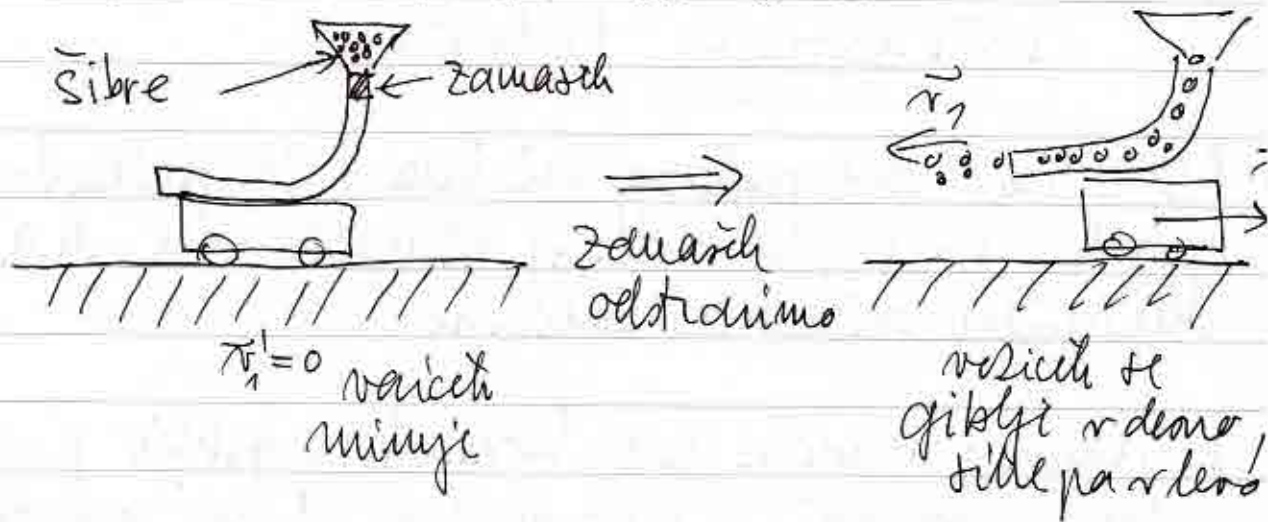 šibre
zamašek
v₁
zamašek
odstranimo
v₁' = 0 voziček
miruje
voziček se
giblje v desno,
šibre pa v levo